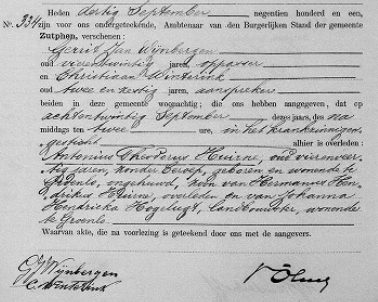 Heden dertig September negentien honderd en een,
No. 334 zijn voor ons ondergeteekende, Ambtenaar van den Burgerlijken Stand der gemeente
Zutphen, verschenen:
Gerrit Jan Wijnbergen
oud vierentwintig jaren, oppasser
en Christiaan Winterink
oud twee en zestig jaren, aanspreker
beiden in deze gemeente woonachtig; die ons hebben aangegeven, dat op
achtentwintig September dezes jaars, des na
middags ten twee ure, in het krankzinnigen
gesticht alhier is overleden:
Antonius Theodorus Huirne, oud vierenveer
tig jaren, zonder beroep, geboren en wonende te
Groenlo, ongehuwd, zoon van Hermannus Hen
drikus Huirne, overleden en van Johanna
Hendrieka Hogelugt, landbouwster, wonende
te Groenlo.
Waarvan akte, die na voorlezing is geteekend door ons met de aangevers.
G J Wijnbergen
C. Winterink